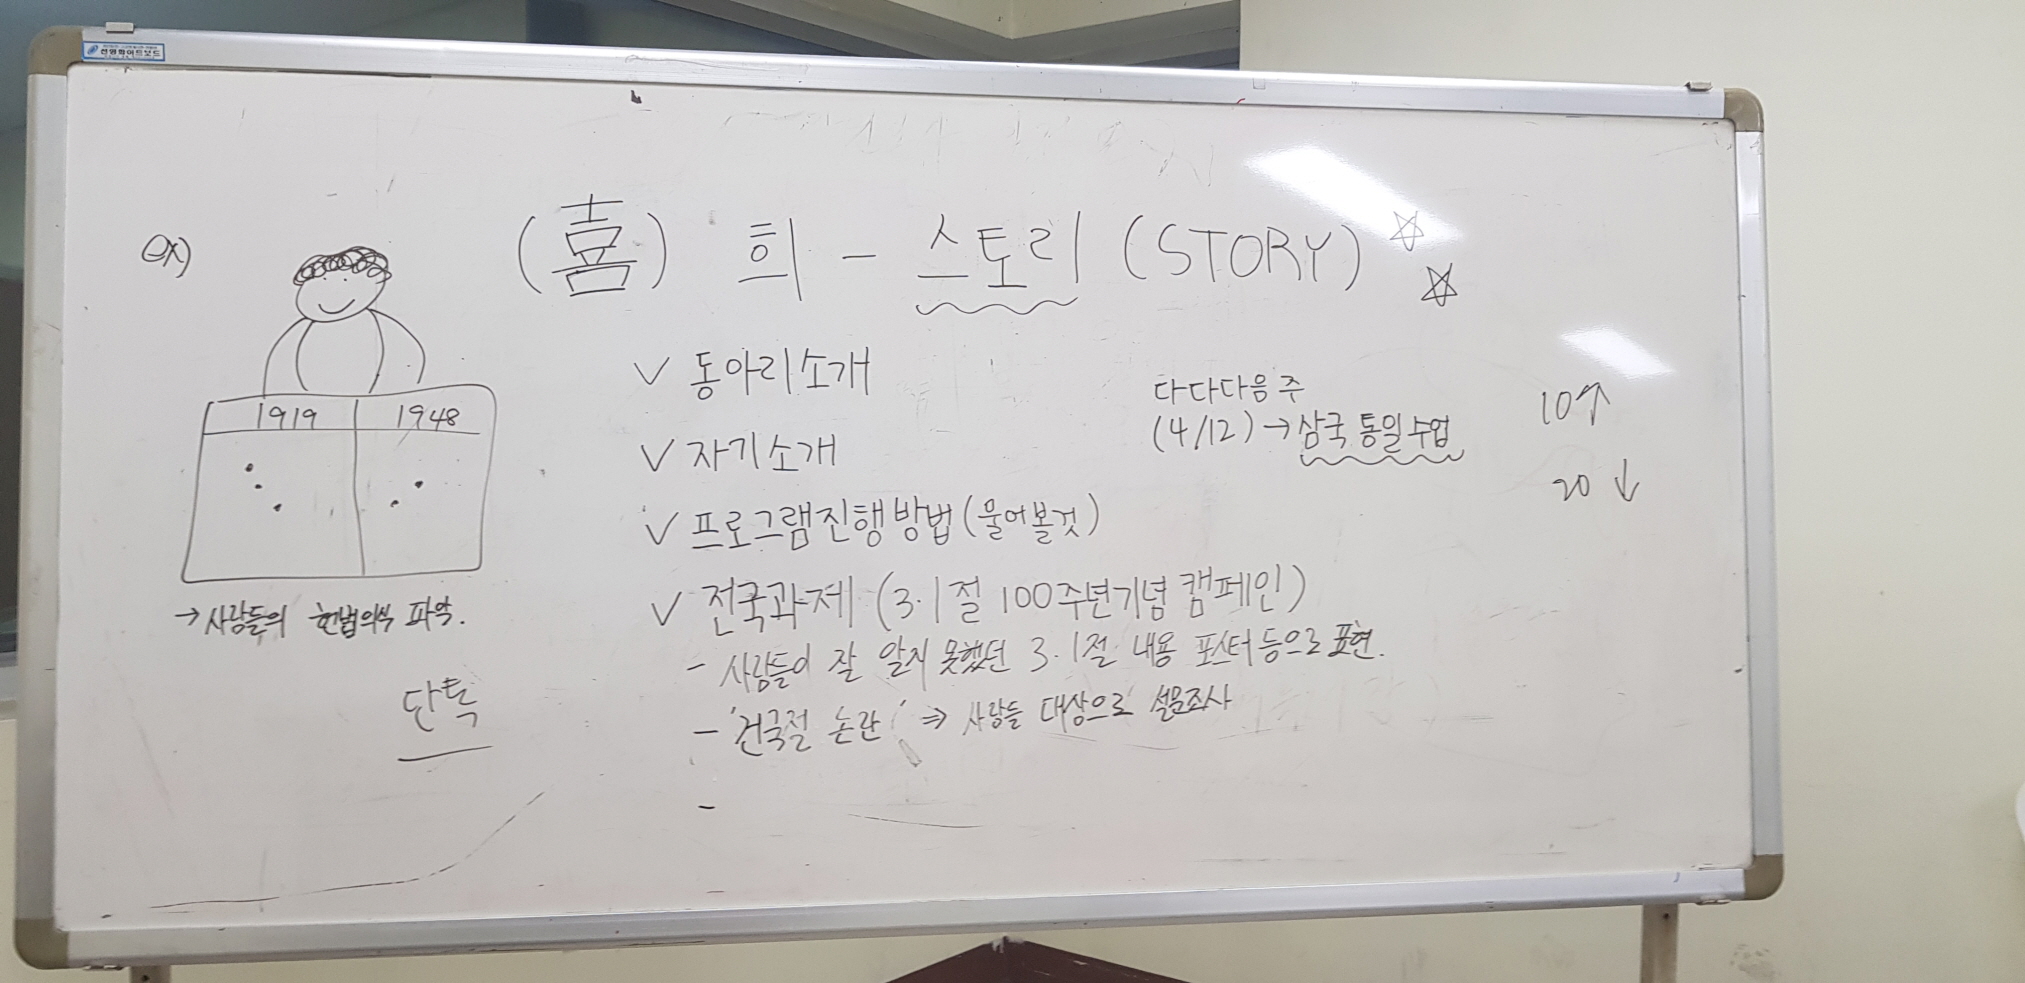 선영화이트보드
(喜) 희 - 스토리 (STORY)
ex)
1919 1948
→ 사람들의 헌법의식 파악.
단톡
✓ 동아리소개
✓ 자기소개
✓ 프로그램진행방법 (물어볼것)
✓ 전국과제 (3.1절 100주년기념 캠페인)
- 사람들이 잘 알지 못했던 3.1절 내용 포스터 등으로 표현.
- '건국절 논란' ⇒ 사람들 대상으로 설문조사
-
다다다음 주
(4/12) → 삼국통일수업
10↑
20↓